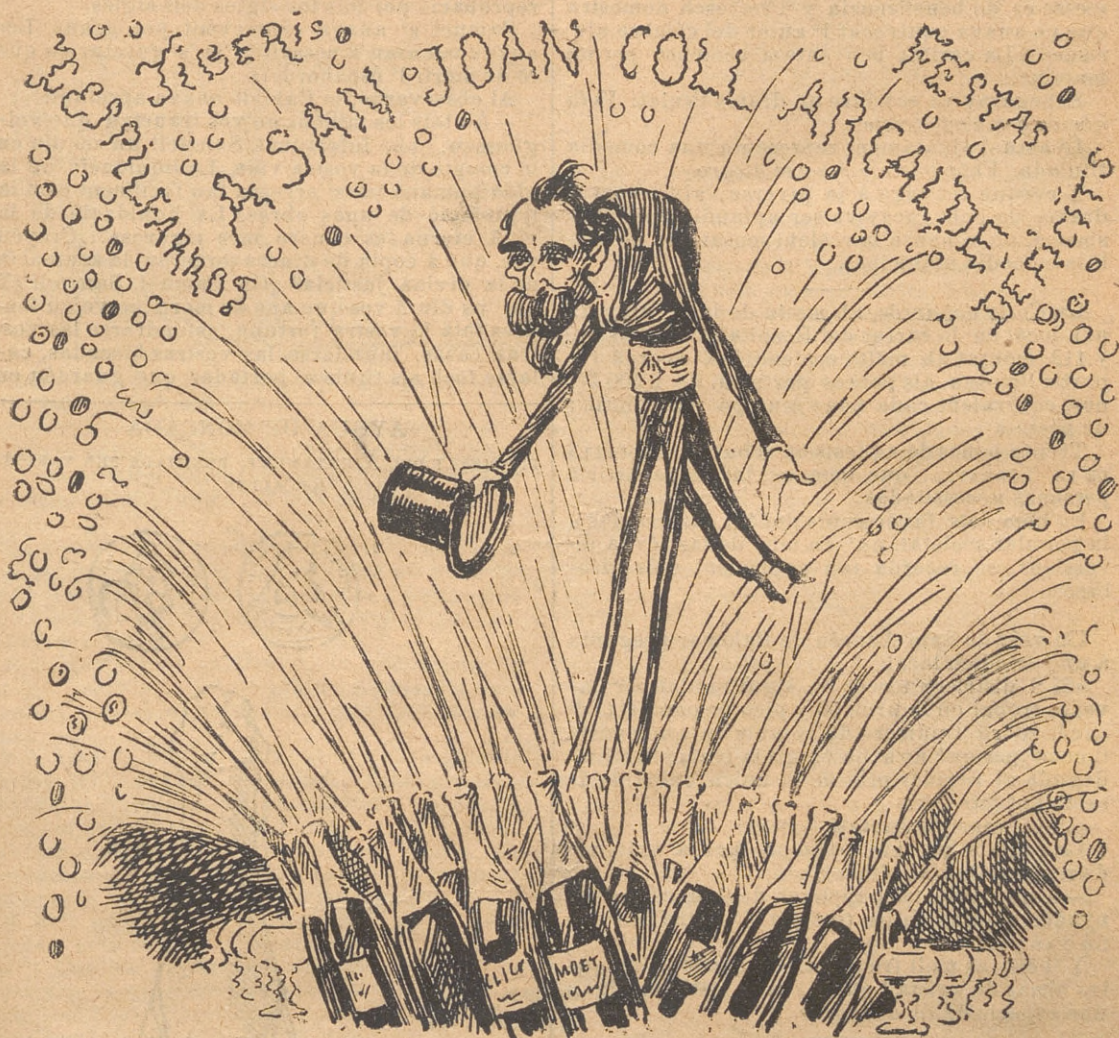 TIBERIS
ESPILFARROS
SANT JOAN COLL ARCALDE
FESTAS
DESPESES
CLICO
MOET